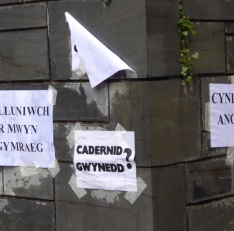 LLUNIWCH
R MWYN
GYMRAEG
CADERNID
GWYNEDD?